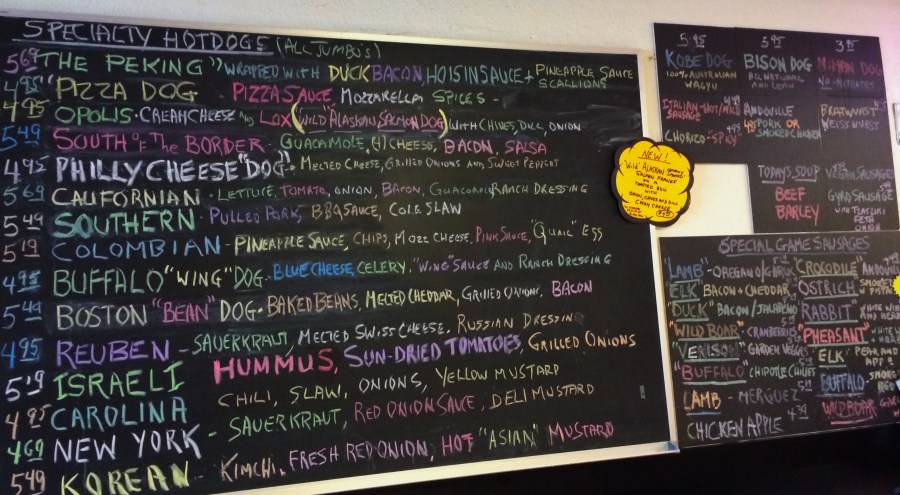 SPECIALTY HOTDOGS (ALL JUMBO'S)
5.69 THE PEKING" WRAPPED WITH DUCK BACON HOISIN SAUCE + PINEAPPLE SAUCE SCALLIONS
4.95 "PIZZA DOG - PIZZA SAUCE, MOZZARELLA SPICES -
4.95 OPOLIS - CREAM CHEESE AND LOX (WILD ALASKAN SALMON DOG) WITH CHIVES, DILL, ONION
5.49 SOUTH OF THE BORDER - GUACAMOLE, CHEESE, BACON, SALSA
4.95 PHILLY CHEESE "DOG" - MELTED CHEESE, GRILLED ONIONS AND SWEET PEPPERS
5.69 CALIFORNIAN - LETTUCE, TOMATO, ONION, BACON, GUACAMOLE RANCH DRESSING
5.49 SOUTHERN - PULLED PORK, BBQ SAUCE, COLE SLAW
5.19 COLOMBIAN - PINEAPPLE SAUCE, CHIPS, MOZZ CHEESE, PINK SAUCE, "QUAIL" EGG
4.95 BUFFALO "WING" DOG - BLUE CHEESE, CELERY, "WING" SAUCE AND RANCH DRESSING
5.49 BOSTON "BEAN" DOG - BAKED BEANS, MELTED CHEDDAR, GRILLED ONIONS, BACON
4.95 REUBEN - SAUERKRAUT, MELTED SWISS CHEESE, RUSSIAN DRESSIN
5.19 ISRAELI HUMMUS, SUN-DRIED TOMATOES, GRILLED ONIONS
4.95 CAROLINA CHILI, SLAW, ONIONS, YELLOW MUSTARD
4.69 NEW YORK - SAUERKRAUT, RED ONION SAUCE, DELI MUSTARD
5.49 KOREAN - KIMCHI, FRESH RED ONION, HOT "ASIAN" MUSTARD
NEW!
"WILD" ALASKAN
SALMON FRANKS
ON A
TOASTED BUN
WITH
ONION, CHIVES AND DILL
CREAM CHEESE
5.95
KOBE DOG
100% AUSTRALIAN
WAGYU
ITALIAN - HOT/MILD
SAUSAGE
CHORICO - SPICY
5.95
BISON DOG
ALL NATURAL
AND LEAN
ANDOUILLE
PORK OR
SMOKED CHICKEN
3.95
DOG
NO-NITRATES
BRATWURST
WEISSWURST
TODAYS SOUP
BEEF
BARLEY
SAUSAGES
GYRO SAUSAGE
WITH TZATZIKI
FETA
ONION
SPECIAL GAME SAUSAGES
"LAMB" - OREGANO/GARLIC
"ELK" BACON + CHEDDAR
"DUCK" BACON/JALAPENO
"WILD BOAR" CRANBERRIES
"VENISON" GARDEN VEGGIES
"BUFFALO" CHIPOTLE CHILIES
LAMB - MERGUEZ
CHICKEN APPLE 4.39
"CROCODILE" ANDOUILLE
"OSTRICH"
"RABBIT" WHITE WINE
"PHEASANT" WHITE
"ELK" PEAR AND
BUFFALO
WILD BOAR